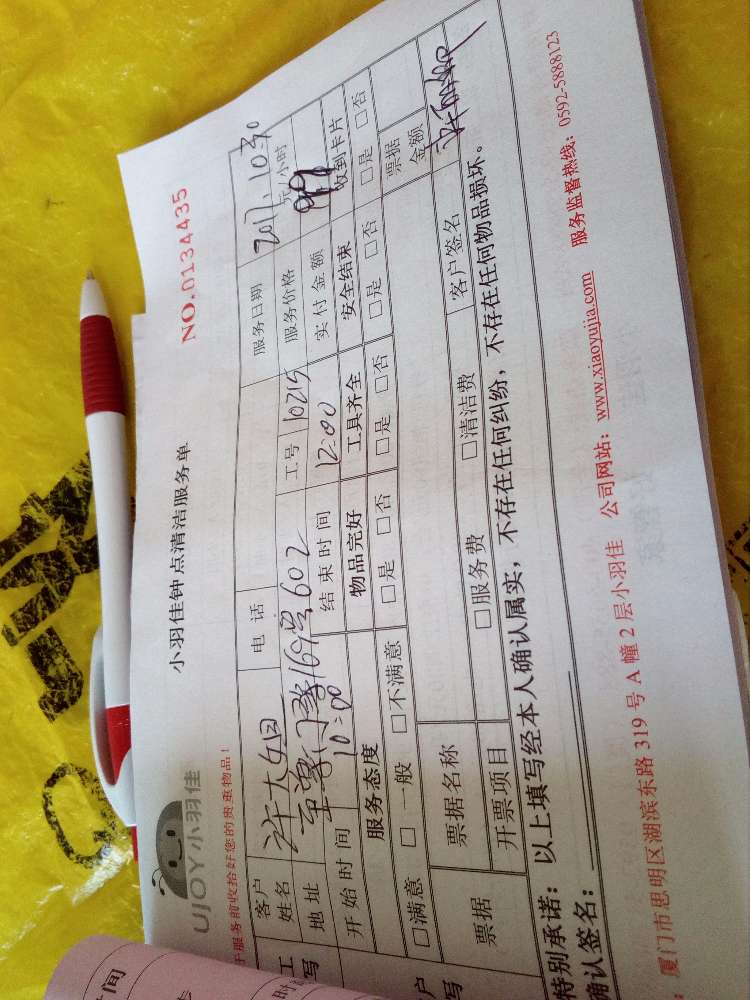 UJOY小羽佳
小羽佳钟点清洁服务单
NO.0134435
于服务前收拾好您的贵重物品！
客户姓名 许大姐 电话 服务日期 2017.10.30
地址 169号602 工号 10215 服务价格 元/小时
开始时间 10:00 结束时间 12:00 实付金额
服务态度 物品完好 工具齐全 安全结束 收到卡片
□满意 □一般 □不满意 □是 □否 □是 □否 □是 □否 □是 □否
票据 票据名称 票据金额
开票项目 □服务费 □清洁费 客户签名
特别承诺：以上填写经本人确认属实，不存在任何纠纷，不存在任何物品损坏。
确认签名：
厦门市思明区湖滨东路 319 号 A 幢 2 层小羽佳 公司网站：www.xiaoyujia.com 服务监督热线：0592-5888123